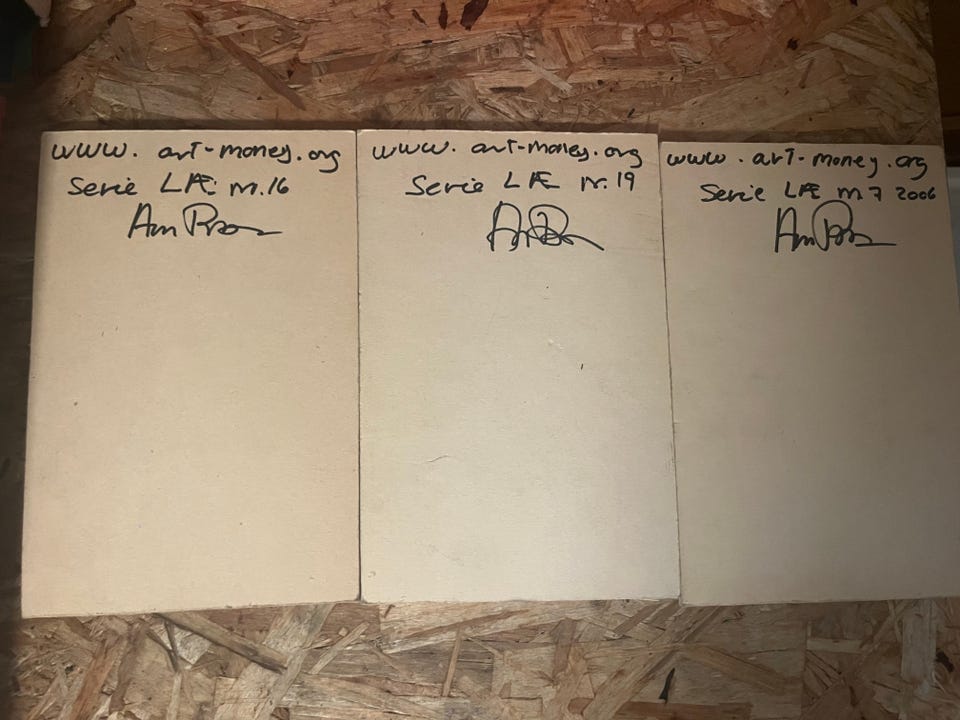 www. art-money.org
Serie LÆ nr.16
www. art-money.org
Serie LÆ nr.19
www. art-money.org
Serie LÆ nr.7 2006